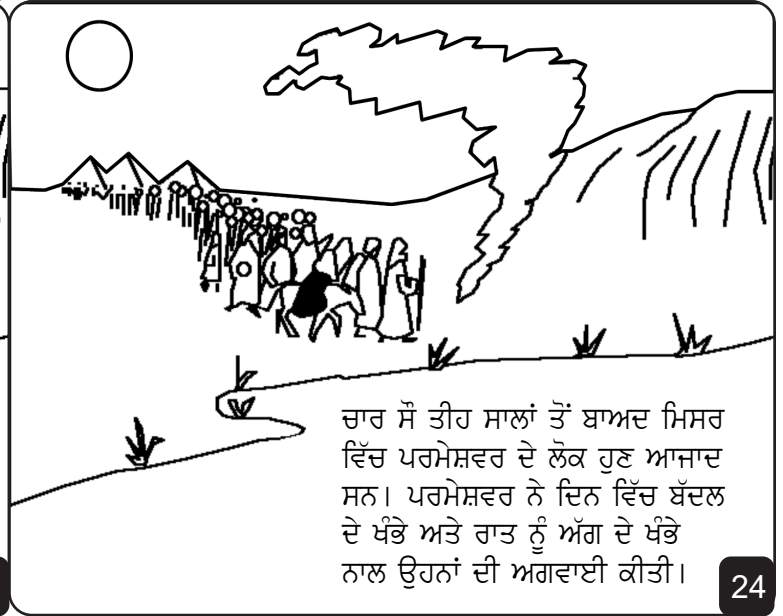 ਚਾਰ ਸੌ ਤੀਹ ਸਾਲਾਂ ਤੋਂ ਬਾਅਦ ਮਿਸਰ
ਵਿੱਚ ਪਰਮੇਸ਼ਵਰ ਦੇ ਲੋਕ ਹੁਣ ਆਜਾਦ
ਸਨ। ਪਰਮੇਸ਼ਵਰ ਨੇ ਦਿਨ ਵਿੱਚ ਬੱਦਲ
ਦੇ ਖੰਭੇ ਅਤੇ ਰਾਤ ਨੂੰ ਅੱਗ ਦੇ ਖੰਭੇ
ਨਾਲ ਉਹਨਾਂ ਦੀ ਅਗਵਾਈ ਕੀਤੀ।
24